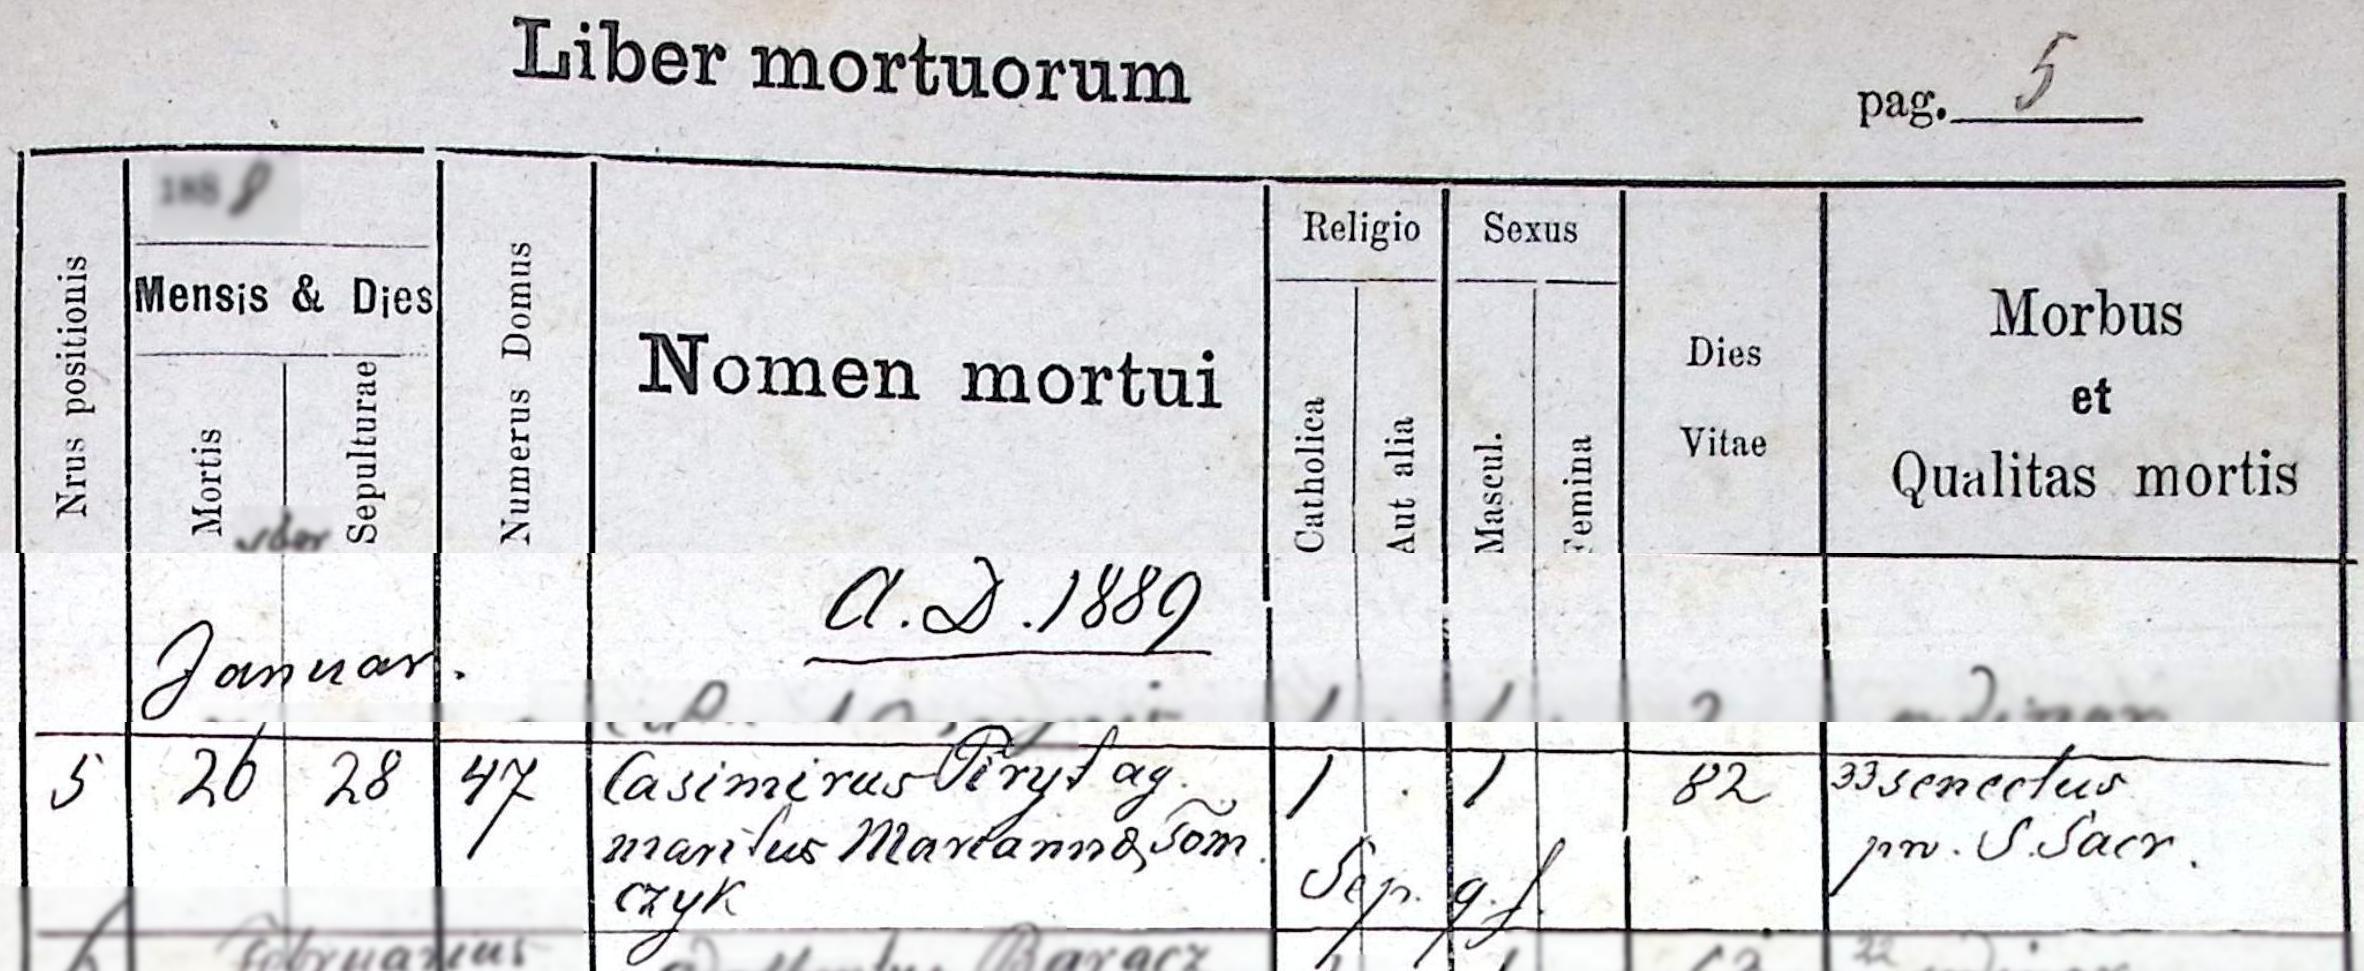 Liber mortuorum
pag. 5
188 8
Nrus positionis
Mensis & Dies
Mortis
Sepulturae
Numerus Domus
Nomen mortui
Religio
Catholica
Aut alia
Sexus
Mascul.
Femina
Dies
Vitae
Morbus
et
Qualitas mortis
A.D. 1889
Januar.
5 26 28 47 Casimirus Piryt ag. 1 . 1 82 33 senectus
maritus Marianna Tom
czyk
pro. S. Sacr.
Sep. g. f.
6 Februarius
Baracz